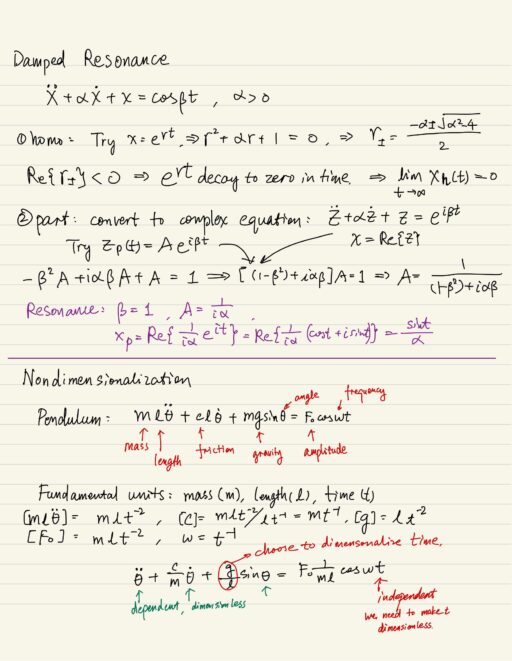 Damped Resonance
Ẍ + αẊ + x = cosβt , α>0
① homo: Try x = e^{rt}, ⇒ r² + αr + 1 = 0, ⇒ r± = (-α±√(α²-4))/2
Re{r±}<0 ⇒ e^{rt} decay to zero in time. ⇒ lim_{t→∞} X_h(t) = 0
② part: convert to complex equation: z̈ + αż + z = e^{iβt}
Try Z_p(t) = A e^{iβt} x = Re{z}
-β²A + iαβA + A = 1 ⇒ [(1-β²) + iαβ]A = 1 ⇒ A = 1/((1-β²)+iαβ)
Resonance: β = 1 , A = 1/(iα) ,
x_p = Re{1/(iα) e^{it}} = Re{1/(iα) (cost + isint)} = sint/α
Nondimensionalization
angle frequency
Pendulum: mlθ̈ + clθ̇ + mgsinθ = F₀coswt
mass length friction gravity amplitude
Fundamental units: mass(m), length(l), time(t)
[mlθ̈] = mlt⁻², [c] = mlt⁻²/lt⁻¹ = mt⁻¹, [g] = lt⁻²
[F₀] = mlt⁻², w = t⁻¹
choose to dimensonalize time.
θ̈ + c/m θ̇ + g/l sinθ = F₀ 1/ml coswt
dependent, dimensionless independent
we need to make t
dimensionless.